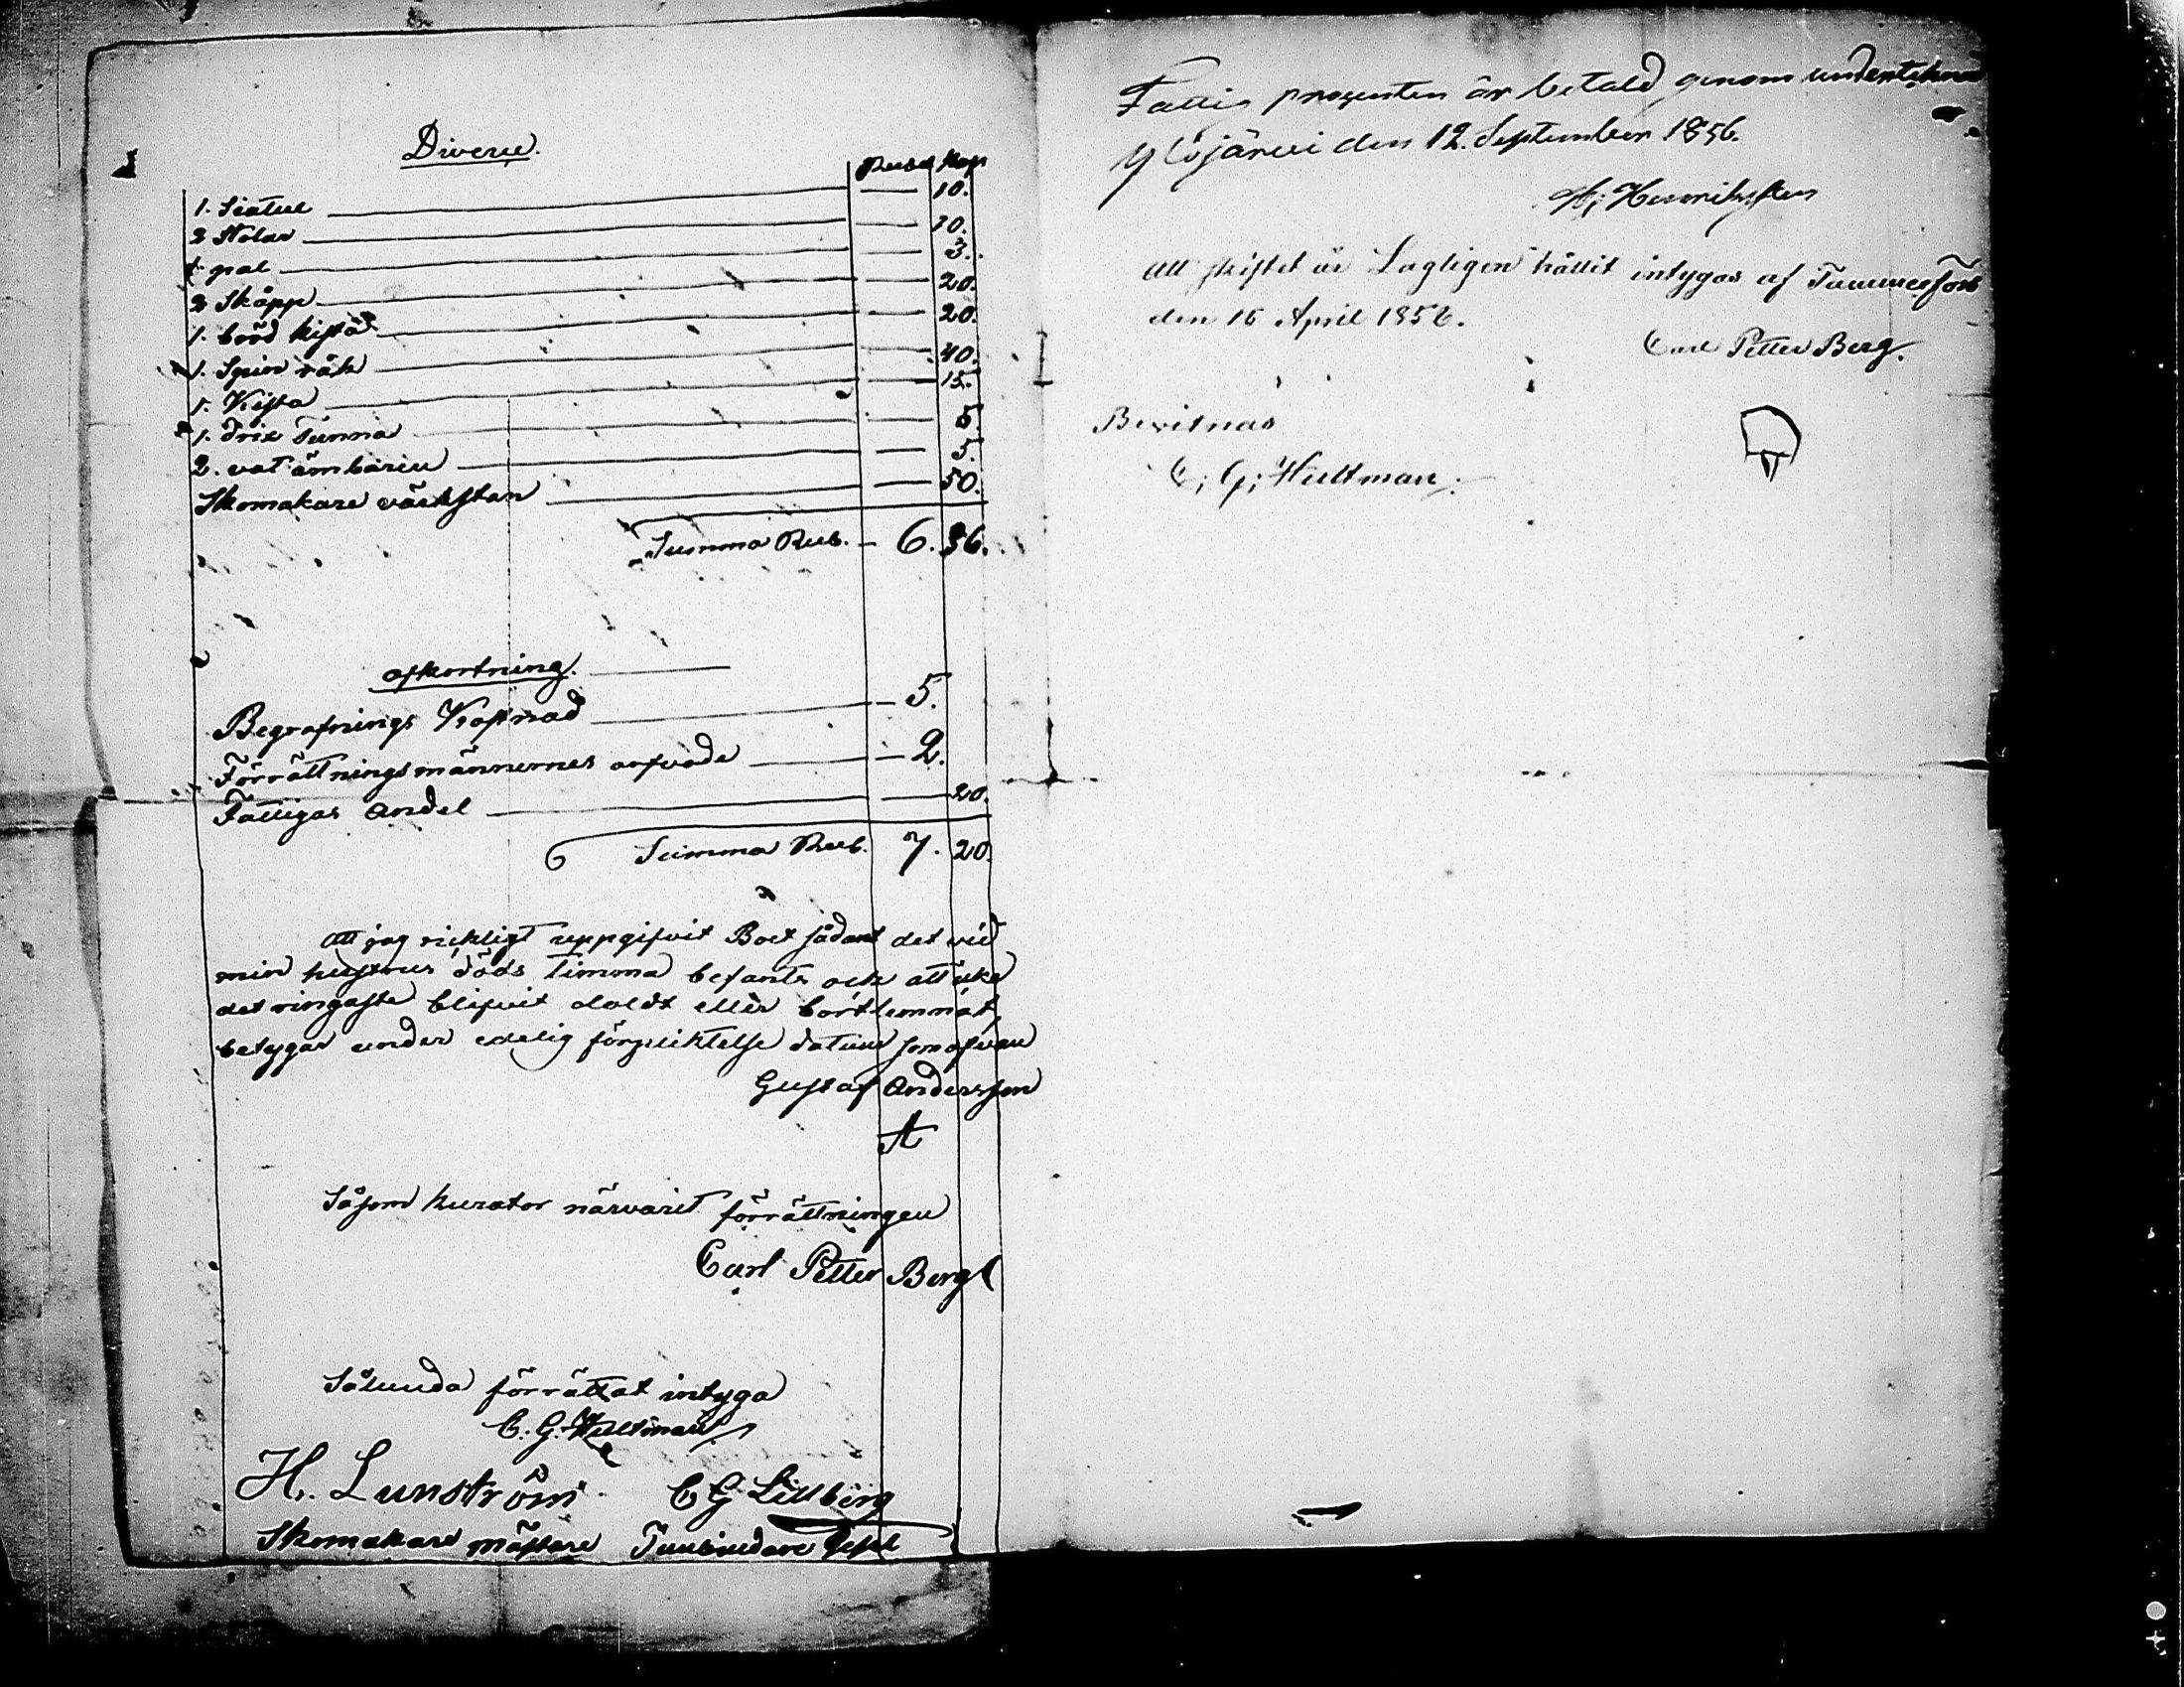 Diverse.
Rubel Kop
1. Siatul 10.
2 Stolar 10.
1 pal 3.
2 Skåpp 20.
1. bröd kista 20.
1. Spin råk 40.
1. Kista 15.
1. drix Tunna 5
2. vat ämbaren 5.
Skomakare värkstan 50.
Summa Rub. 6. 36.
afkortning.
Begrafnings Kostnad 5.
Förrättningsmännernes arfvode 2.
Fattigas Andel 20.
Summa Rub. 7. 20.
Att jag ricktigt uppgifvit Boet sådant det vid
min hustrus döds timma befants och att icke
det ringaste blifvit doldt eller bortlemnat,
betygar under edelig förpliktelse datum som ofvan
Gustaf Andersson
A
Såsom kurator närvarit förrättningen
Carl Petter Berg
Sålunda förrättat intyga
C. G. Hultman
H. Lunström C G Lillberg
Skomakare mästare Tunbindare
Fattig prosenten är betald genom underteknad
Ylöjärvi den 12. September 1856.
H; Henriksson
Att skiftet är Lagligen hållit intygas af Tammerfors
den 16 April 1856.
Carl Petter Berg.
Bevitnas
C; G; Hultman.